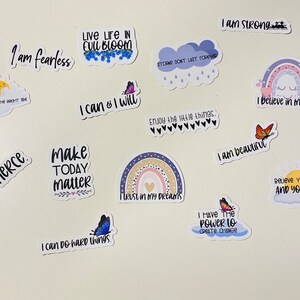 LIVE LIFE IN
FULL BLOOM
I am fearless
STORMS DON'T LAST FOREVER
I am strong
I can & I will
I believe in m
Enjoy the little things.
I am beautiful
ERCE
MAKE
TODAY
MATTER
I TRUST IN MY DREAMS
BELIEVE Y
AND YO
I HAVE THE
POWER TO
CREATE CHANGE
I CAN DO HARD THINGS